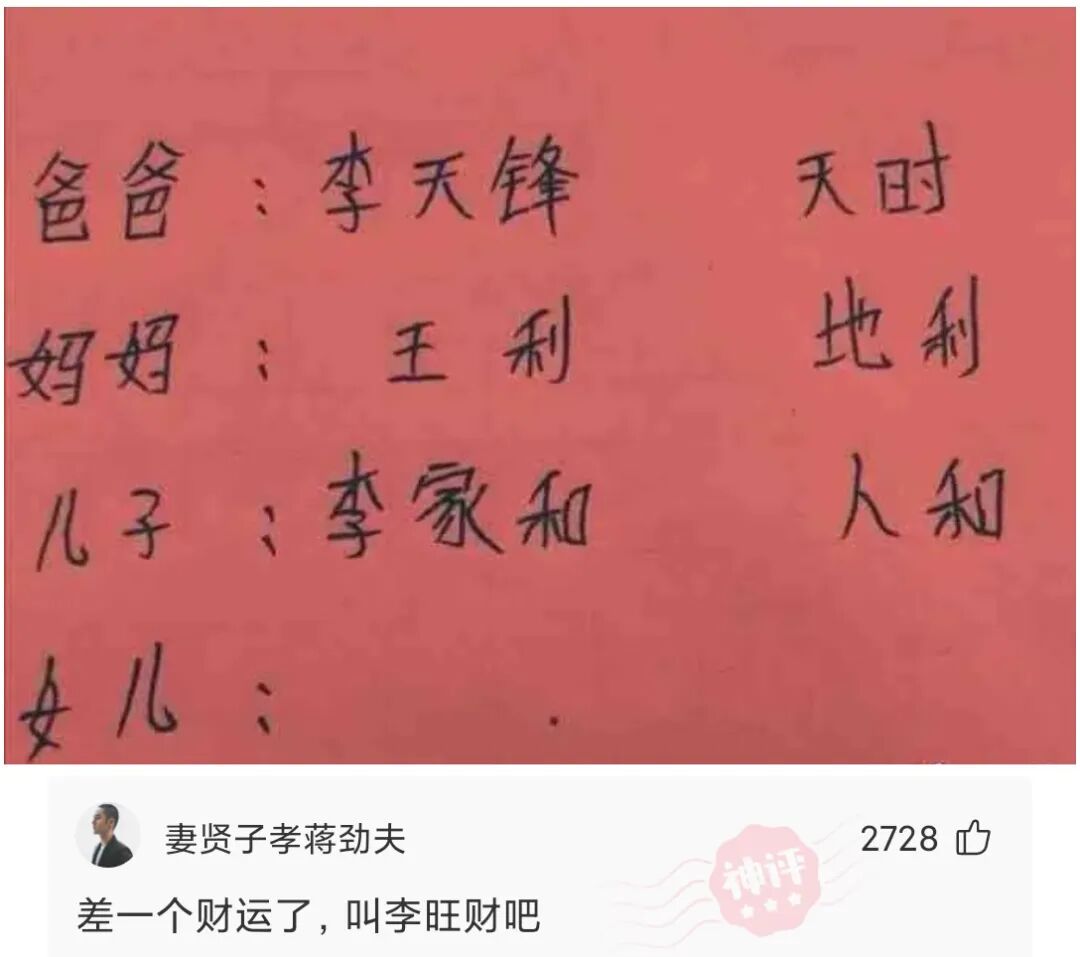 爸爸：李天锋 天时
妈妈：王利 地利
儿子：李家和 人和
女儿：
妻贤子孝蒋劲夫 2728
神评
差一个财运了，叫李旺财吧